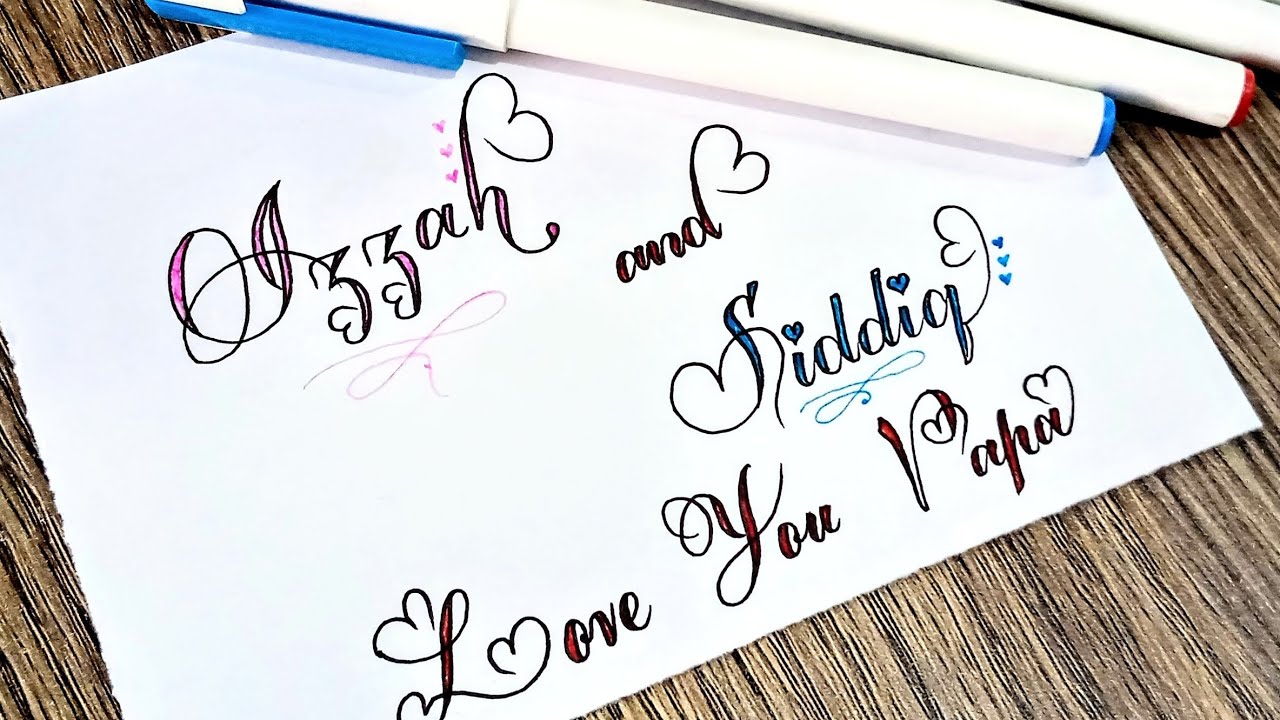 Azzah and
Siddiq
Love You Papa